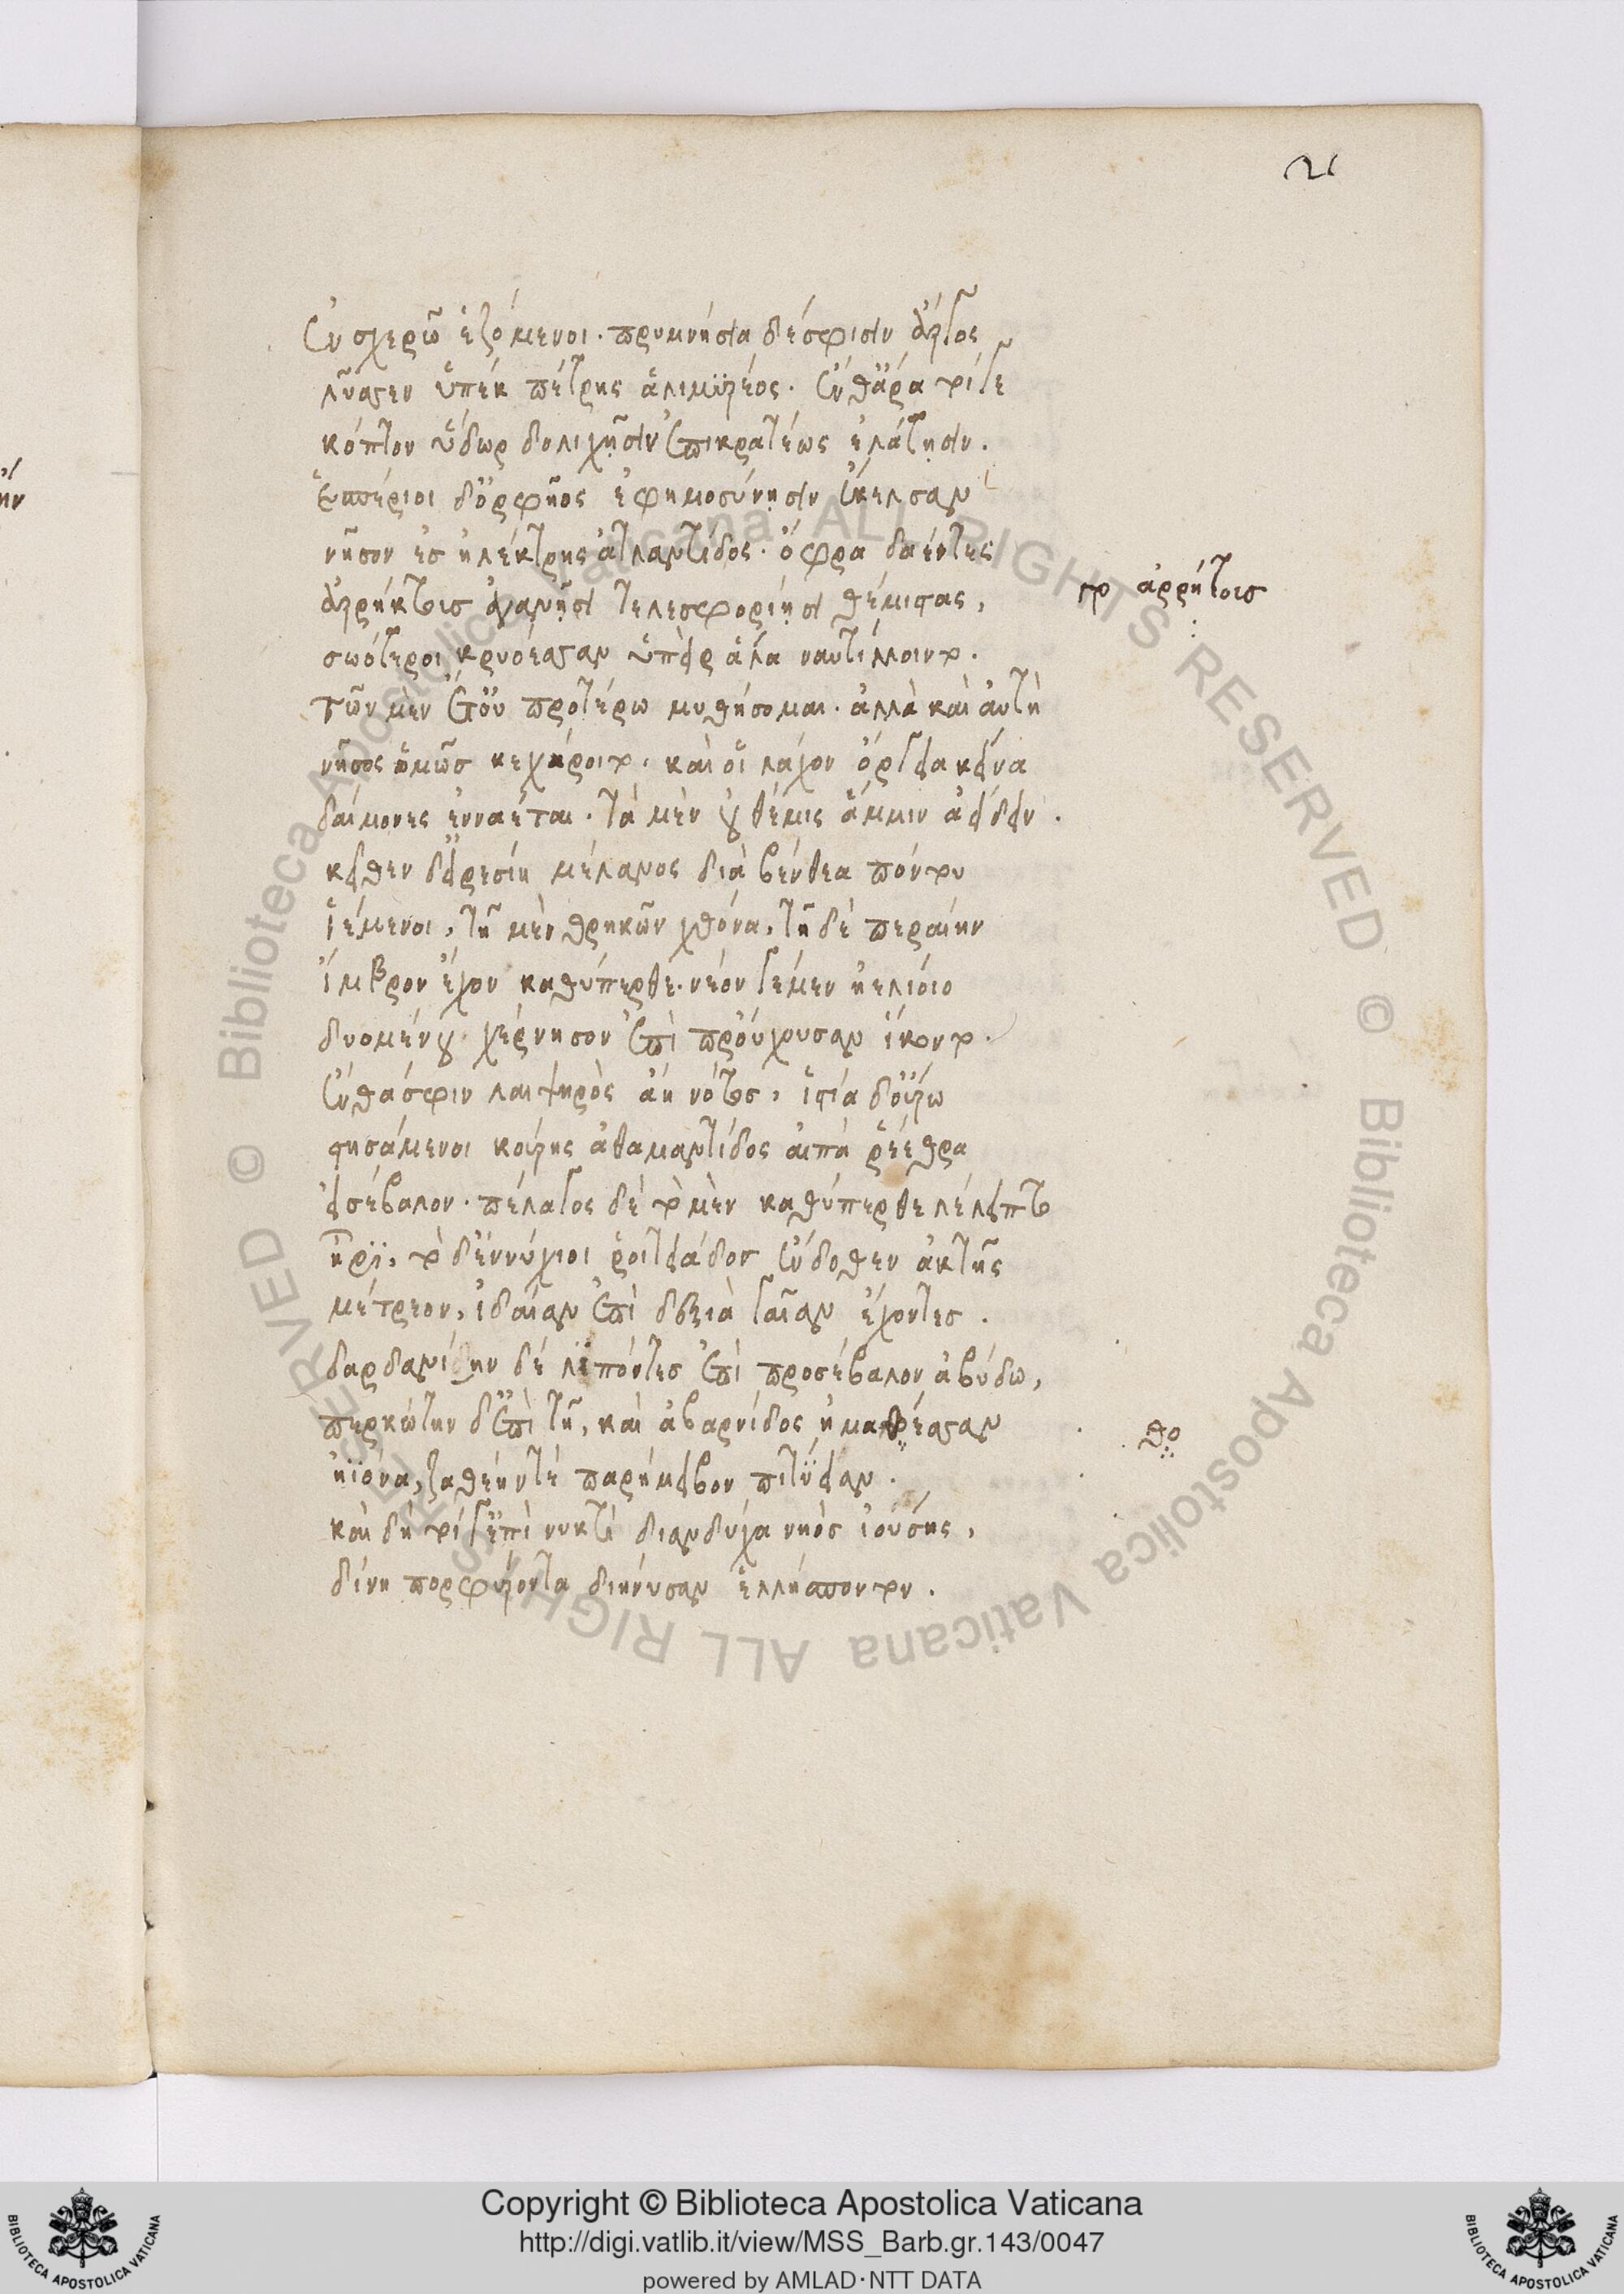 21
ἐν σχερῷ ἑζόμενοι. πρυμνήσια δέ σφισιν ἄργος
λῦσεν ὑπὲκ πέτρης ἁλιμυρέος. ἔνθ' ἄρα τοίγε
κόπτον ὕδωρ δολιχῇσιν ἐπικρατέως ἐλάτῃσιν.
ἑσπέριοι δ' ὀρφῆος ἐφημοσύνῃσιν ἔκελσαν
νῆσον ἐς ἠλέκτρης ἀτλαντίδος. ὄφρα δαέντες
ἀρρήκτοις ἀγανῇσι τελεσφορίῃσι θέμιστας,
γρ ἀρρήτοις
σωότεροι κρυόεσσαν ὑπεὶρ ἅλα ναυτίλλοιντο.
τῶν μὲν ἔτ' οὐ προτέρω μυθήσομαι. ἀλλὰ καὶ αὐτὴ
νῆσος ὁμῶς κεχάροιτο. καὶ οἳ λάχον ὄργεια κεῖνα
δαίμονες ἐνναέται. τὰ μὲν οὐ θέμις ἄμμιν ἀείδειν.
κεῖθεν δ' εἰρεσίῃ μέλανος διὰ βένθεα πόντου
ἱέμενοι, τῇ μὲν θρηκῶν χθόνα, τῇ δὲ περαίην
ἴμβρον ἔχον καθύπερθε. νέον γε μὲν ἠελίοιο
δυομένου χέρνησον ἐπὶ προύχουσαν ἵκοντο.
ἔνθά σφιν λαιψηρὸς ἄη νότος, ἱστία δ' οὔρῳ
στησάμενοι κούρης ἀθαμαντίδος αἰπὰ ῥέεθρα
εἰσέβαλον. πέλαγος δὲ τὸ μὲν καθύπερθε λέλειπτο
ἦρι, τὸ δ' ἐννύχιοι ῥοιτειάδος ἔνδοθεν ἀκτῆς
μέτρεον, ἰδαίαν ἐπὶ δεξιὰ γαῖαν ἔχοντες.
δαρδανίην δὲ λιπόντες ἐπὶ προσέβαλον ἀβύδῳ,
περκώτην δ' ἐπὶ τῇ, καὶ ἀβαρνίδος ἠμαθόεσσαν
θο
ἠϊόνα, ζαθέην τὲ παρήμειβον πιτύειαν.
καὶ δὴ τοίγ' ἐπὶ νυκτὶ διανδίχα νηὸς ἰούσης,
δίνῃ πορφύροντα διήνυσαν ἑλλήσποντον.
© Biblioteca Apostolica Vaticana ALL RIGHTS RESERVED © Biblioteca Apostolica Vaticana ALL RIGHTS RESERVED
Copyright © Biblioteca Apostolica Vaticana
http://digi.vatlib.it/view/MSS_Barb.gr.143/0047
powered by AMLAD·NTT DATA
BIBLIOTECA APOSTOLICA VATICANA
BIBLIOTECA APOSTOLICA VATICANA